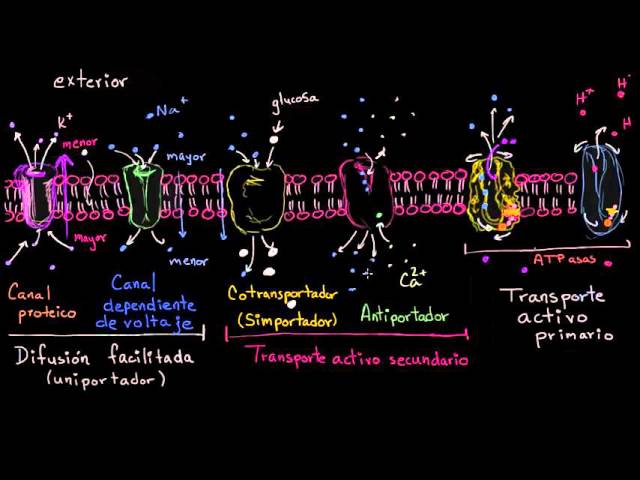 exterior
K+
menor
mayor
Na+
mayor
menor
glucosa
Ca2+
H+
H
H
ATPasas
Canal
proteico
Canal
dependiente
de voltaje
Cotransportador
(Simportador)
Antiportador
Transporte
activo
primario
Difusión facilitada
(uniportador)
Transporte activo secundario